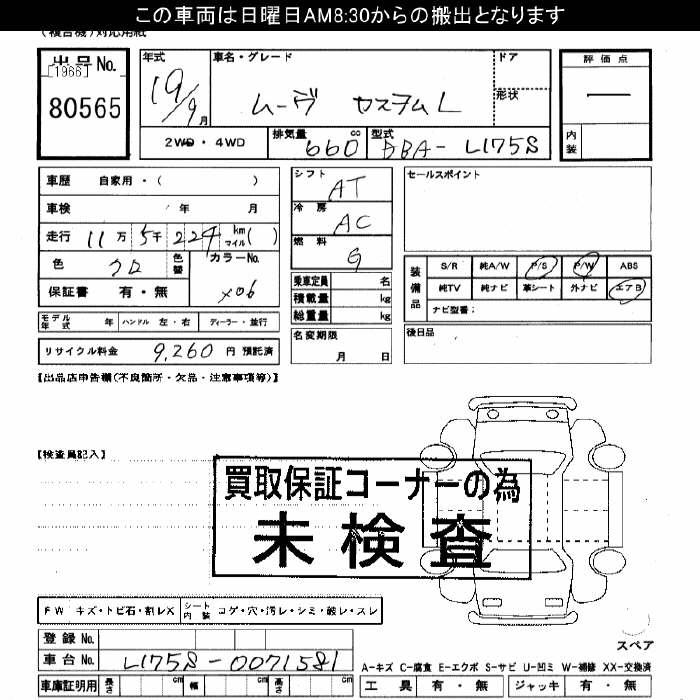 この車両は日曜日AM8:30からの搬出となります
(複合機)対応用紙
出品No.
[1966]
80565
年式 車名・グレード ドア
19/9月 ムーヴ カスタムL 形状
2WD・4WD 排気量 660 cc 型式 BBA-L175S
評価点
—
内装
車歴 自家用・( )
車検 年 月
走行 11万 5千 224 km マイル( )
色 クロ 色替 カラーNo.
保証書 有・無 X06
モデル年式 年 ハンドル 左・右 ディーラー・並行
リサイクル料金 9,260 円 預託済
シフト AT
冷房 AC
燃料 G
乗車定員 名
積載量 kg
総重量 kg
名変期限
月 日
セールスポイント
装備品
S/R 純A/W P/S P/W ABS
純TV 純ナビ 革シート 外ナビ エアB
ナビ型番:
後日品
【出品店申告欄(不良箇所・欠品・注意事項等)】
【検査員記入】
買取保証コーナーの為
未検査
FW キズ・トビ石・割レX シート内装 コゲ・穴・汚レ・シミ・破レ・スレ
登録No.
車台No. L175S-0071581
車庫証明用 長さ cm 幅 cm 高さ cm
スペア
A-キズ C-腐食 E-エクボ S-サビ U-凹ミ W-補修 XX-交換済
工具 有・無 ジャッキ 有・無